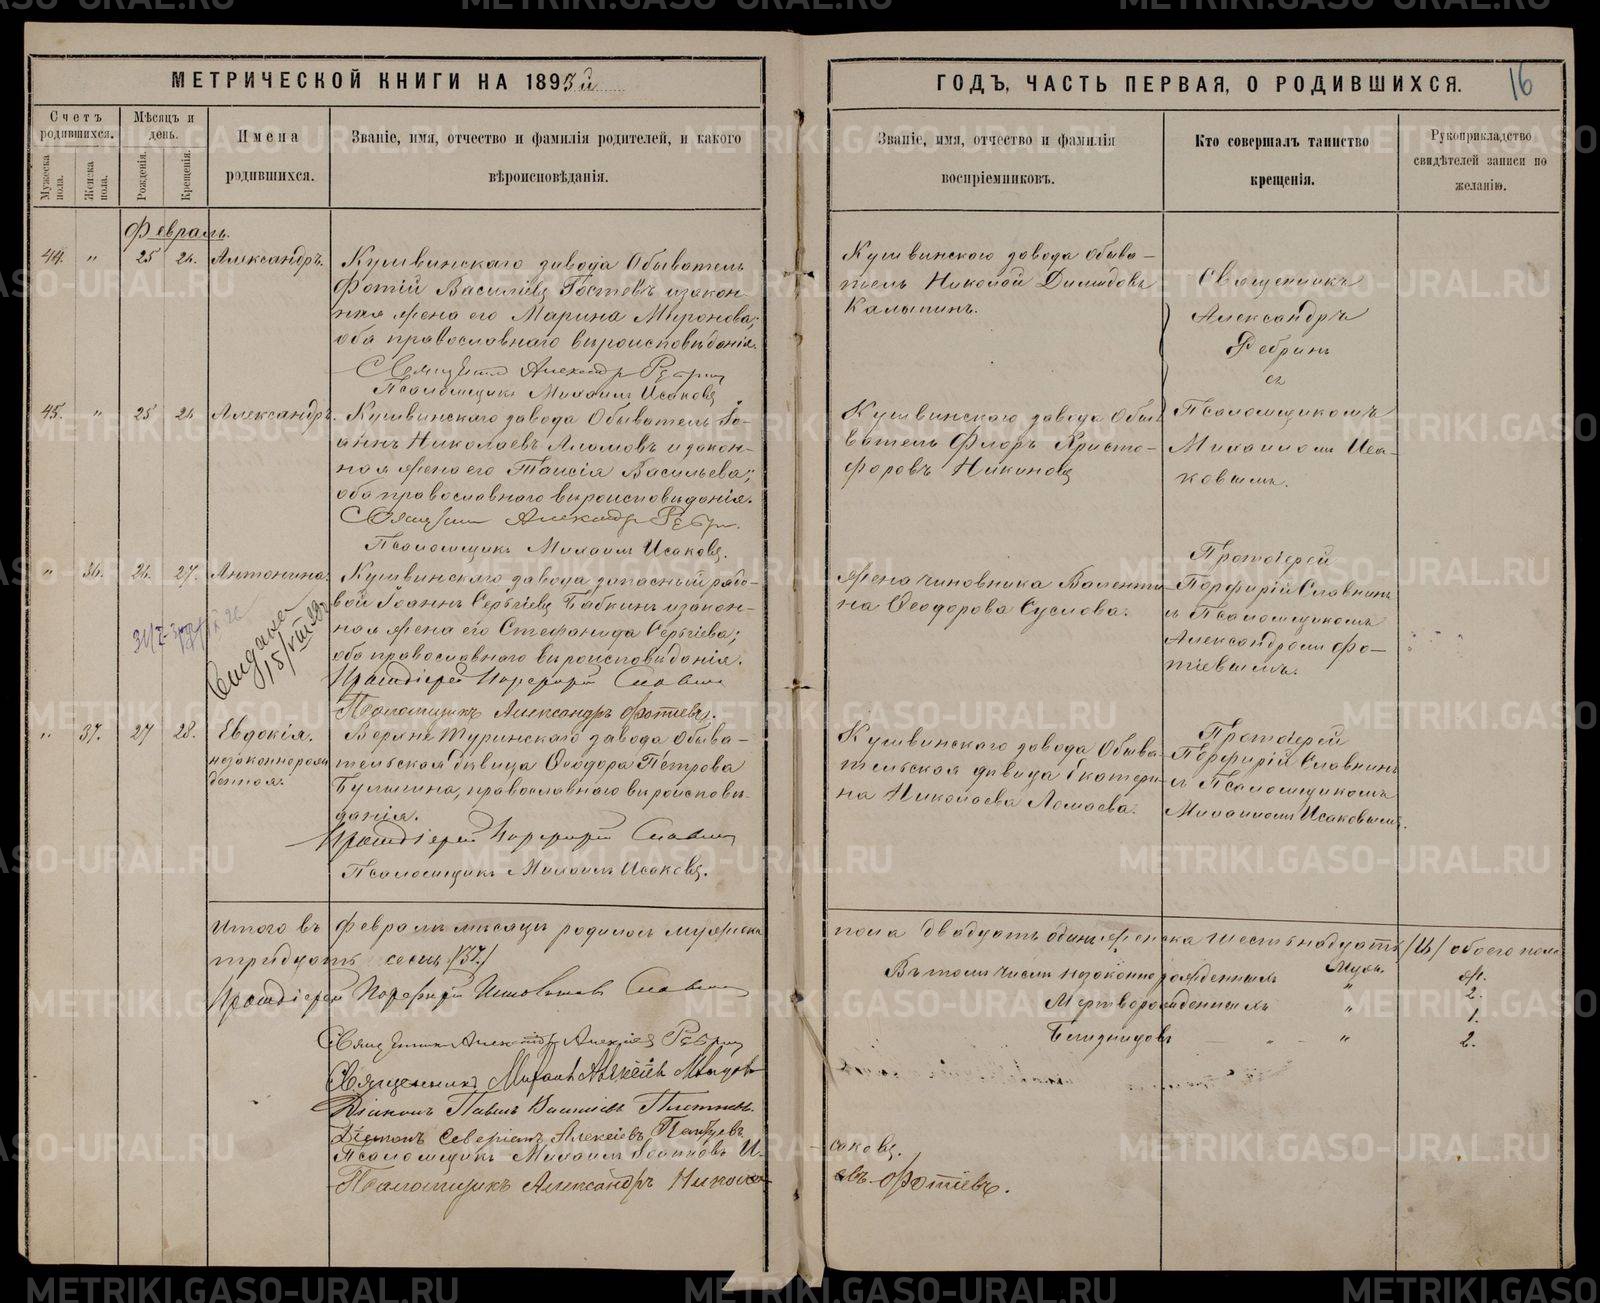 МЕТРИЧЕСКОЙ КНИГИ НА 1893й
ГОДЪ, ЧАСТЬ ПЕРВАЯ, О РОДИВШИХСЯ.
16
Счетъ родившихся.
Мужеска пола.
Женска пола.
Мѣсяцъ и день.
Рожденія.
Крещенія.
Имена родившихся.
Званіе, имя, отчество и фамилія родителей, и какого
вѣроисповѣданія.
Званіе, имя, отчество и фамилія
воспріемниковъ.
Кто совершалъ таинство
крещенія.
Рукоприкладство
свидѣтелей записи по
желанію.
Февраль.
44. " 25 26. Александръ.
Кушвинскаго завода Обыватель
Фотій Васильевъ Гостевъ и закон-
ная жена его Марина Миронова;
оба православнаго вѣроисповѣданія.
Священникъ Александръ Ребрин
Псаломщикъ Михаилъ Исаковъ
Кушвинскаго завода Обыва-
тель Николай Димидовъ
Калыпинъ.
Священникъ
Александръ
Ребринъ
съ
Псаломщикомъ
Михаиломъ Иса-
ковымъ.
45. " 25 26 Александръ.
Кушвинскаго завода Обыватель Іо-
аннъ Николаевъ Ломовъ и закон-
ная жена его Таисія Васильева;
оба православнаго вѣроисповѣданія.
Священник Александр Ребрин.
Псаломщикъ Михаилъ Исаковъ.
Кушвинскаго завода Обы-
ватель Флоръ Христо-
форовъ Никиновъ
" 36. 26. 27. Антонина.
Кушвинскаго завода запасный рядо-
вой Іоаннъ Сергіевъ Бабкинъ и закон-
ная жена его Стефанида Сергіева;
оба православнаго вѣроисповѣданія.
Протоіерей Порфирій Славнин
Псаломщикъ Александръ Фотіевъ.
Жена чиновника Валенти-
на Ѳеодорова Суслова.
Протоіерей
Порфирій Славнинъ
и Псаломщикомъ
Александромъ Фо-
тіевымъ.
Выдано
15/VIII
" 37. 27 28. Евдокія.
незаконнорож
денная.
Верхне Туринскаго завода Обыва-
тельская дѣвица Ѳеодора Петрова
Булыгина, православнаго вѣроисповѣ-
данія.
Протоіерей Порфирій Славнин
Псаломщикъ Михаилъ Исаковъ.
Кушвинскаго завода Обыва-
тельская дѣвица Екатери-
на Николаева Ломаева.
Протоіерей
Порфирій Славнинъ
и Псаломщикомъ
Михаиломъ Исаковымъ.
Итого въ февралѣ мѣсяцѣ родилось мужеска
пола двадцать одинъ женска шестьнадцать /16/ обоего пола
тридцать семь /37./
Въ томъ числѣ незаконно рожденныхъ Муж. " ж. 2.
Мертворожденныхъ " 1.
Близнецовъ " " 2.
Протоіерей Порфирій Славнин
Священникъ Александръ Алексѣев Ребрин
Священникъ Михаилъ Алексѣевъ
Діаконъ Павелъ Васильевъ
Діаконъ Северіанъ Алексѣевъ
Псаломщикъ Михаилъ Іоанновъ И-
саковъ.
Псаломщикъ Александръ Никола-
евъ Фотіевъ.
METRIKI.GASO-URAL.RU